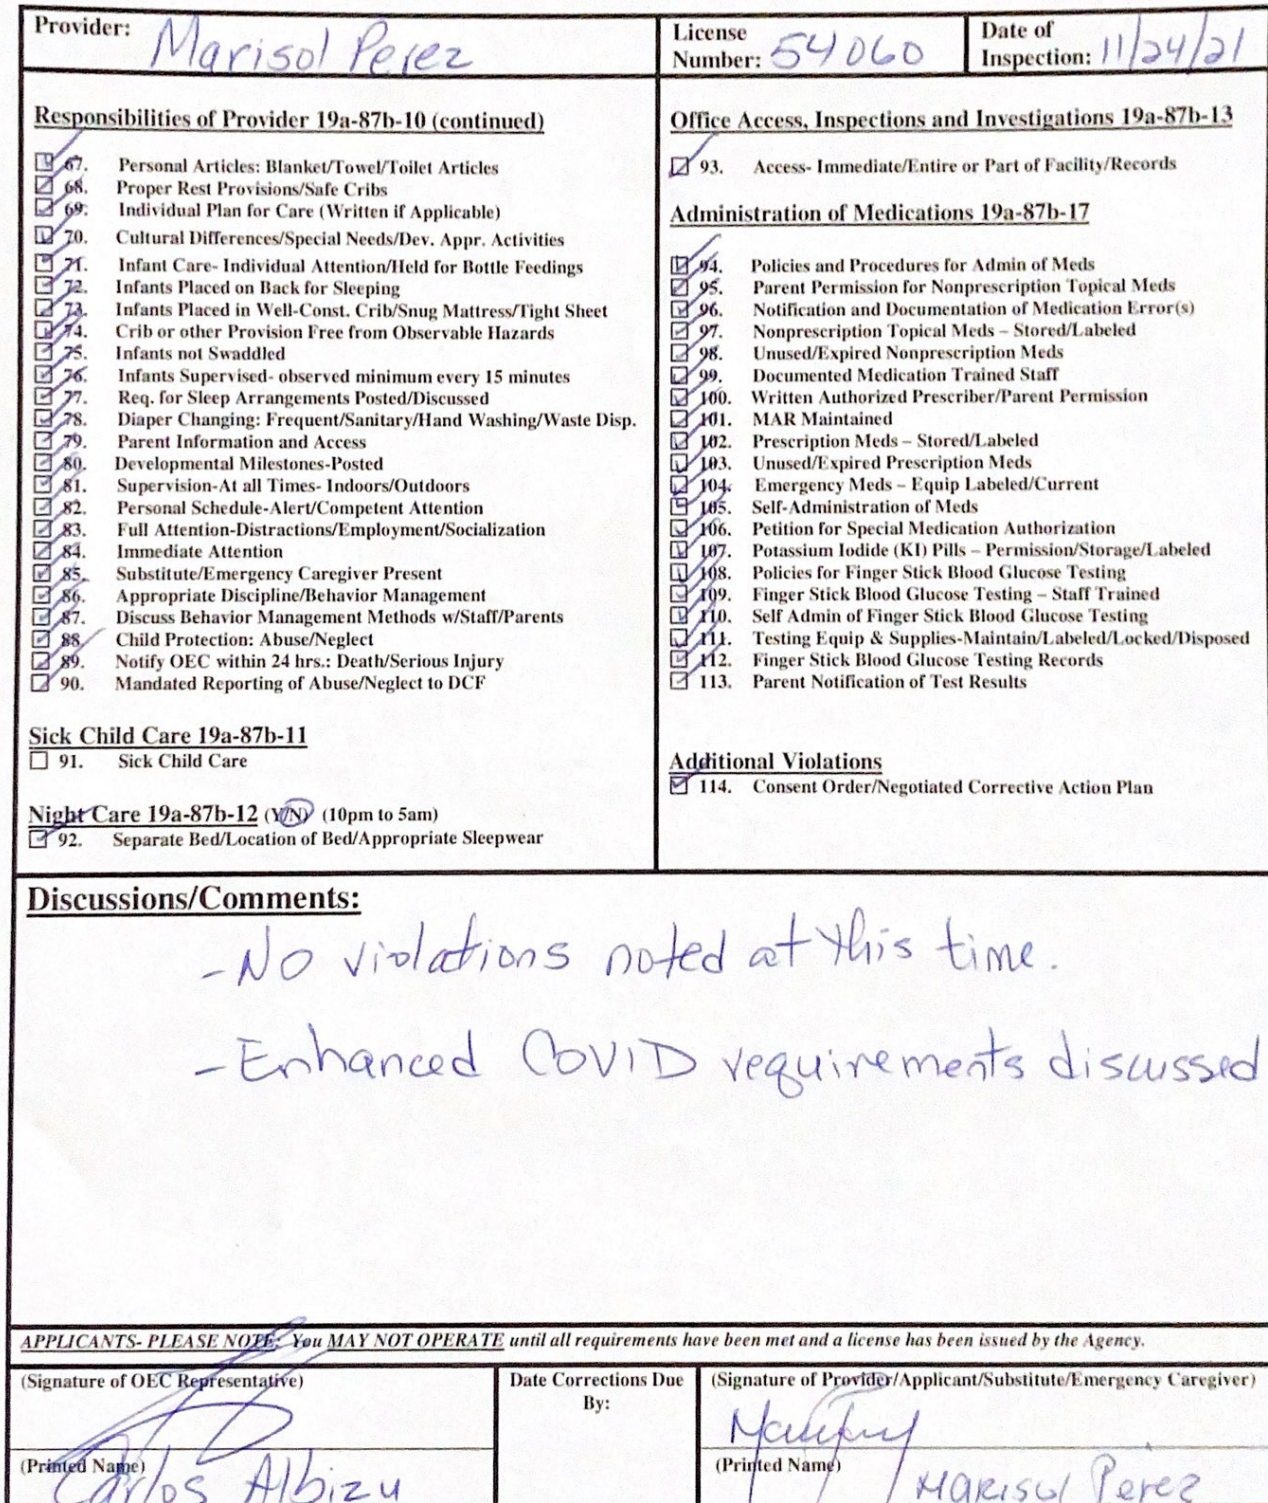 Provider: Marisol Perez
License Number: 54060
Date of Inspection: 11/24/21
Responsibilities of Provider 19a-87b-10 (continued)
67. Personal Articles: Blanket/Towel/Toilet Articles
68. Proper Rest Provisions/Safe Cribs
69. Individual Plan for Care (Written if Applicable)
70. Cultural Differences/Special Needs/Dev. Appr. Activities
71. Infant Care- Individual Attention/Held for Bottle Feedings
72. Infants Placed on Back for Sleeping
73. Infants Placed in Well-Const. Crib/Snug Mattress/Tight Sheet
74. Crib or other Provision Free from Observable Hazards
75. Infants not Swaddled
76. Infants Supervised- observed minimum every 15 minutes
77. Req. for Sleep Arrangements Posted/Discussed
78. Diaper Changing: Frequent/Sanitary/Hand Washing/Waste Disp.
79. Parent Information and Access
80. Developmental Milestones-Posted
81. Supervision-At all Times- Indoors/Outdoors
82. Personal Schedule-Alert/Competent Attention
83. Full Attention-Distractions/Employment/Socialization
84. Immediate Attention
85. Substitute/Emergency Caregiver Present
86. Appropriate Discipline/Behavior Management
87. Discuss Behavior Management Methods w/Staff/Parents
88. Child Protection: Abuse/Neglect
89. Notify OEC within 24 hrs.: Death/Serious Injury
90. Mandated Reporting of Abuse/Neglect to DCF
Sick Child Care 19a-87b-11
91. Sick Child Care
Night Care 19a-87b-12 (Y/N) (10pm to 5am)
92. Separate Bed/Location of Bed/Appropriate Sleepwear
Office Access, Inspections and Investigations 19a-87b-13
93. Access- Immediate/Entire or Part of Facility/Records
Administration of Medications 19a-87b-17
94. Policies and Procedures for Admin of Meds
95. Parent Permission for Nonprescription Topical Meds
96. Notification and Documentation of Medication Error(s)
97. Nonprescription Topical Meds – Stored/Labeled
98. Unused/Expired Nonprescription Meds
99. Documented Medication Trained Staff
100. Written Authorized Prescriber/Parent Permission
101. MAR Maintained
102. Prescription Meds – Stored/Labeled
103. Unused/Expired Prescription Meds
104. Emergency Meds – Equip Labeled/Current
105. Self-Administration of Meds
106. Petition for Special Medication Authorization
107. Potassium Iodide (KI) Pills – Permission/Storage/Labeled
108. Policies for Finger Stick Blood Glucose Testing
109. Finger Stick Blood Glucose Testing – Staff Trained
110. Self Admin of Finger Stick Blood Glucose Testing
111. Testing Equip & Supplies-Maintain/Labeled/Locked/Disposed
112. Finger Stick Blood Glucose Testing Records
113. Parent Notification of Test Results
Additional Violations
114. Consent Order/Negotiated Corrective Action Plan
Discussions/Comments:
- No violations noted at this time.
- Enhanced COVID requirements discussed
APPLICANTS- PLEASE NOTE: You MAY NOT OPERATE until all requirements have been met and a license has been issued by the Agency.
(Signature of OEC Representative)
(Printed Name)
Carlos Albizu
Date Corrections Due
By:
(Signature of Provider/Applicant/Substitute/Emergency Caregiver)
(Printed Name)
Marisol Perez